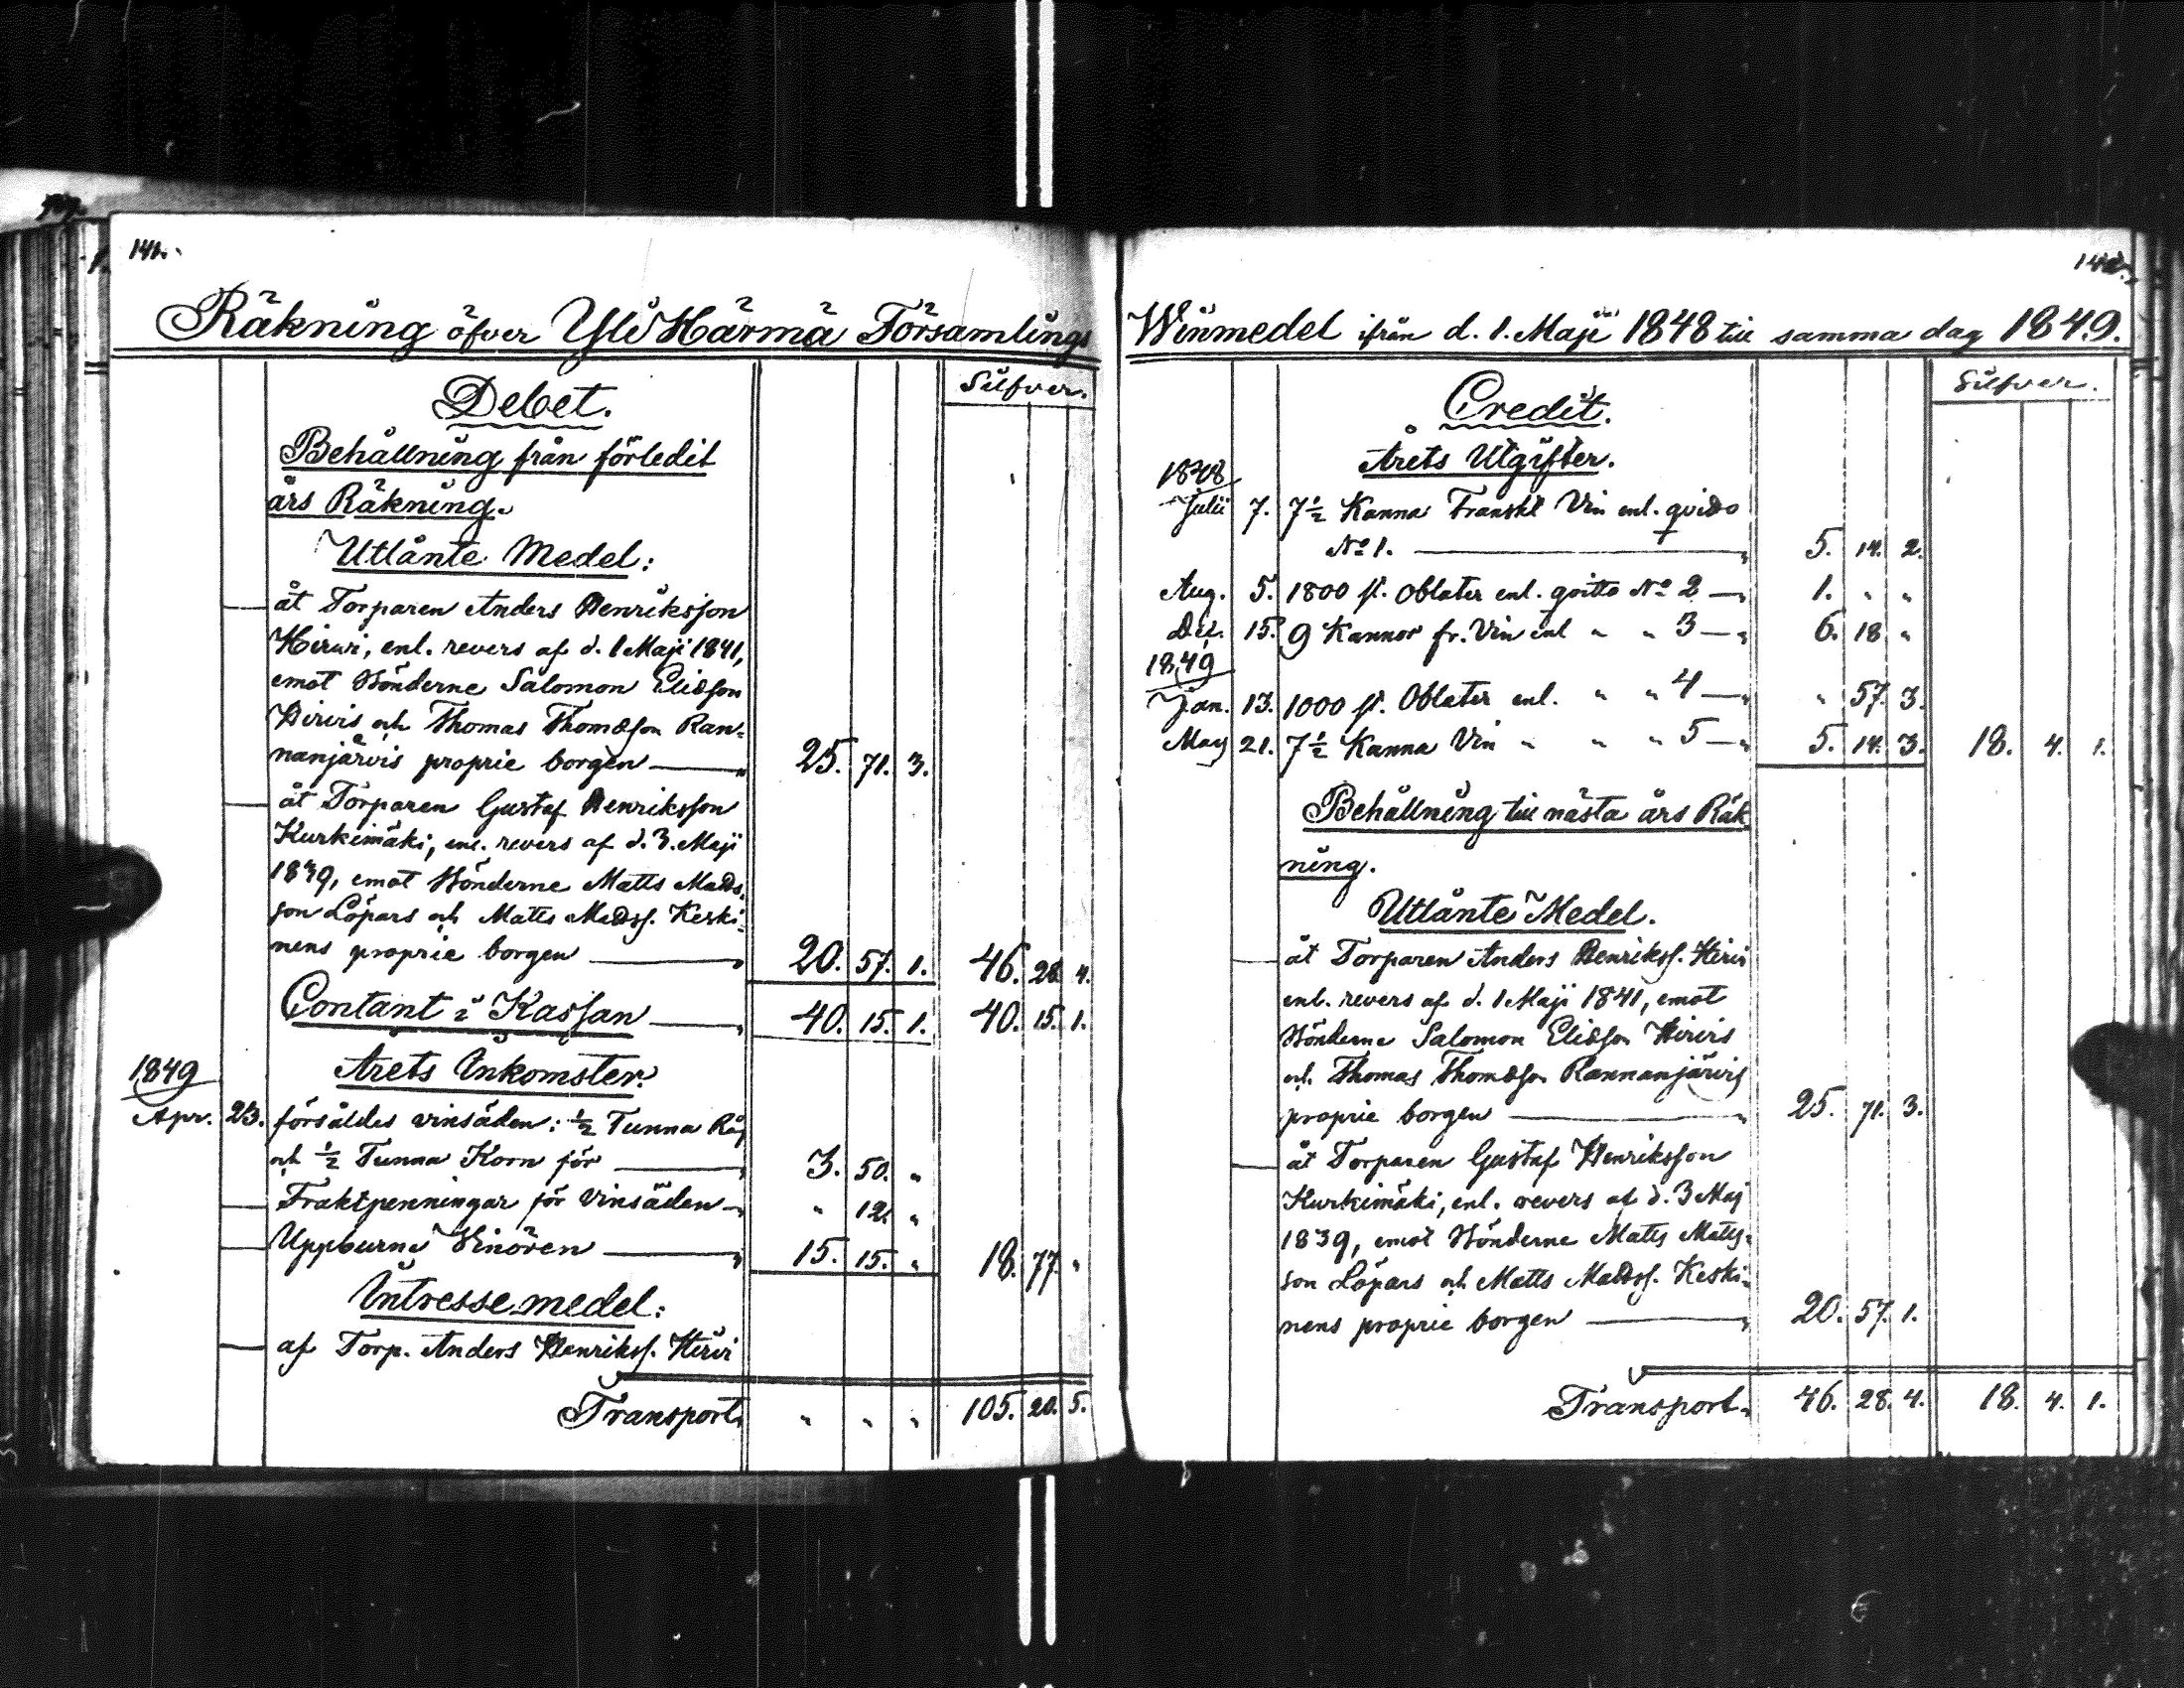 141.
Räkning öfver Yli Härmä Församlings
Silfver.
Debet.
Behållning från förledit
års Räkning.
Utlånte Medel:
åt Torparen Anders Henriksson
Hirvi, enl. revers af d. 1 Maji 1841,
emot Bönderne Salomon Elidson
Hirvis och Thomas Thomasson Ran-
nanjärvis proprie borgen 25. 71. 3.
åt Torparen Gustaf Henriksson
Kurkimäki, enl. revers af d. 3. Maji
1839, emot Bönderne Matts Mads-
son Löpars och Matts Madss. Keski-
nens proprie borgen 20. 57. 1. 46. 28. 4.
Contant i Kassan 40. 15. 1. 40. 15. 1.
Årets Inkomster.
1849
Apr. 23. försåldes vinsäden: ½ Tunna Råg
och ½ Tunna Korn för 3. 50. "
Fraktpenningar för vinsäden " 12. "
Uppburne Vinören 15. 15. " 18. 77. "
Intresse medel:
af Torp. Anders Henrikss. Hirvi
Transport. " " " 105. 20. 5.
142.
Winmedel ifrån d. 1. Maji 1848 till samma dag 1849.
Silfver.
Credit.
Årets Utgifter.
1848
Julii 7. 7½ Kanna Franskt Vin enl. qvitto
No 1. 5. 14. 2.
Aug. 5. 1800 st. Oblater enl. qvitto No 2 1. " "
Dec. 15. 9 Kannor fr. Vin enl " " 3 6. 18 "
1849
Jan. 13. 1000 st. Oblater enl. " " 4 " 57. 3.
Maij 21. 7½ Kanna Vin " " " 5 5. 14. 3. 18. 4. 1.
Behållning till nästa års Räk
ning.
Utlånte Medel.
åt Torparen Anders Henrikss. Hirvi
enl. revers af d. 1 Maji 1841, emot
Bönderne Salomon Elidson Hirvis
och Thomas Thomasson Rannanjärvis
proprie borgen 25. 71. 3.
åt Torparen Gustaf Henriksson
Kurkimäki, enl. revers af d. 3 Maj
1839, emot Bönderne Matts Matts-
son Löpars och Matts Madss. Keski-
nens proprie borgen 20. 57. 1.
Transport. 46. 28. 4. 18. 4. 1.